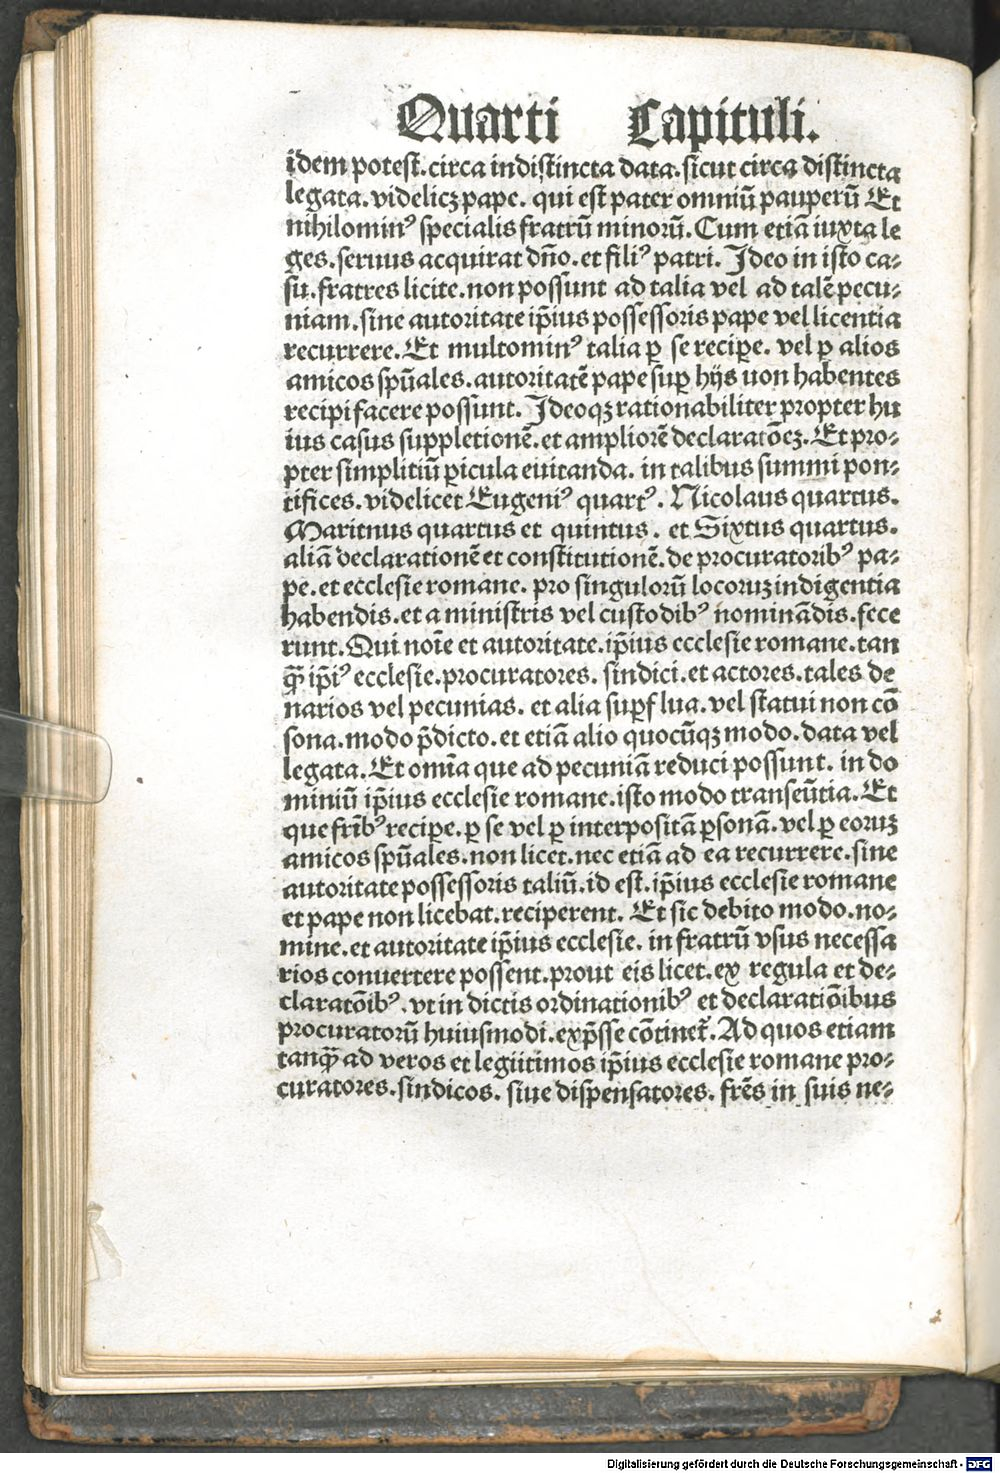 Quarti Capituli.
idem potest. circa indistincta data. sicut circa distincta
legata. videlicꝫ pape. qui est pater omniū pauperū Et
nihilominꝰ specialis fratrū minorū. Cum etiā iuxta le
ges. seruus acquirat dn̄o. et filiꝰ patri. Ideo in isto ca-
su. fratres licite. non possunt ad talia vel ad talē pecu-
niam. sine autoritate ip̄ius possessoris pape vel licentia
recurrere. Et multominꝰ talia ꝑ se reciꝑe. vel ꝑ alios
amicos sp̄uales. autoritatē pape suꝑ hijs uon habentes
recipi facere possunt. Ideoqꝫ rationabiliter propter hu
ius casus suppletionē. et ampliorē declaratōeꝫ. Et pro-
pter simplitiū ꝑicula euitanda. in talibus summi pon-
tifices. videlicet Eugeniꝰ quartꝰ. Nicolaus quartus.
Maritnus quartus et quintus. et Sixtus quartus.
aliā declarationē et constitutionē. de procuratoribꝰ pa-
pe. et ecclesie romane. pro singulorū locoruꝫ indigentia
habendis. et a ministris vel custodibꝰ nominādis. fece
runt. Qui noīe et autoritate. ip̄ius ecclesie romane. tan
qꝫ̄ ip̄iꝰ ecclesie. procuratores. sindici. et actores. tales de
narios vel pecunias. et alia suꝑflua. vel statui non cō
sona. modo p̄dicto. et etiā alio quocūqꝫ modo. data vel
legata. Et om̄ia que ad pecuniā reduci possunt. in do
miniū ip̄ius ecclesie romane. isto modo transeūtia. Et
que fr̄ibꝰ reciꝑe. ꝑ se vel ꝑ interpositā ꝑsonā. vel ꝑ eoruꝫ
amicos sp̄uales. non licet. nec etiā ad ea recurrere. sine
autoritate possessoris taliū. id est. ip̄ius ecclesie romane
et pape non licebat. reciperent. Et sic debito modo. no-
mine. et autoritate ip̄ius ecclesie. in fratrū vsus necessa
rios conuertere possent. prout eis licet. ex regula et de-
claratōibꝰ. vt in dictis ordinationibꝰ et declaratiōibus
procuratorū huiusmodi. exp̄sse cōtinet᷑. Ad quos etiam
tanqꝫ̄ ad veros et legiitimos ip̄ius ecclesie romane pro-
curatores. sindicos. siue dispensatores. fr̄es in suis ne-
Digitalisierung gefördert durch die Deutsche Forschungsgemeinschaft - DFG